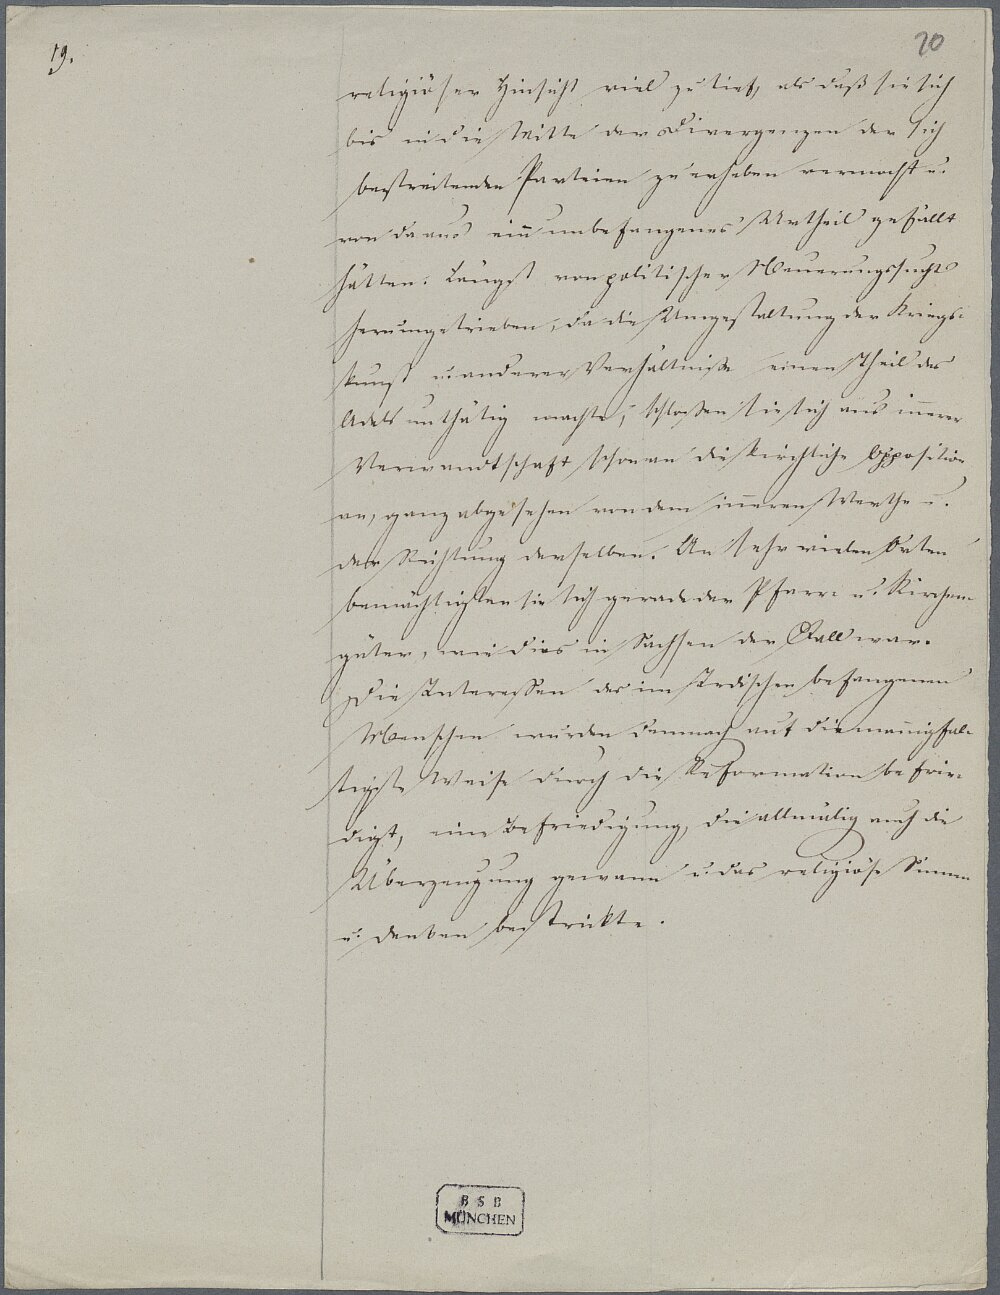 19.
20
religiöser Hinsicht viel zu tief, als daß sie sich
bis in die Mitte der Divergenzen der sich
bestreitenden Parteien zu erheben vermocht u.
von da aus ein unbefangenes Urtheil gefällt
hätten. Längst von politischer Neuerungssucht
herumgetrieben, da die Umgestaltung der Kriegs-
kunst u. anderer Verhältniße einen Theil des
Adels unthätig machte, schloßen sie sich aus innerer
Verwandtschaft schon an die kirchliche Opposition
an, ganz abgesehen von dem inneren Werthe u.
der Richtung derselben. An sehr vielen Orten
bemächtigten sie sich gerade der Pfarr- u. Kirchen-
güter, wie dies in Sachsen der Fall war.
Die Interessen des im Irdischen befangenen
Menschen wurden demnach auf die mannigfal-
tigste Weise durch die Reformation befrie-
digt, eine Befriedigung, die allmälig auch die
Überzeugung gewann u. das religiöse Sinnen
u. Denken bestrickte.
B S B
MÜNCHEN